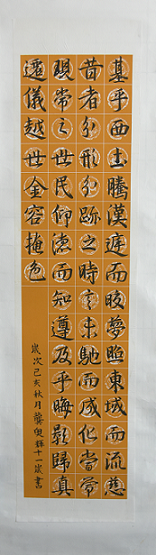 基乎西土騰漢庭而皎夢照東域而流慈
昔者分形分跡之時言未馳而成化當常
現常之世民仰德而知遵及乎晦影歸真
遷儀越世金容掩色
歲次己亥秋月龔十一歲書